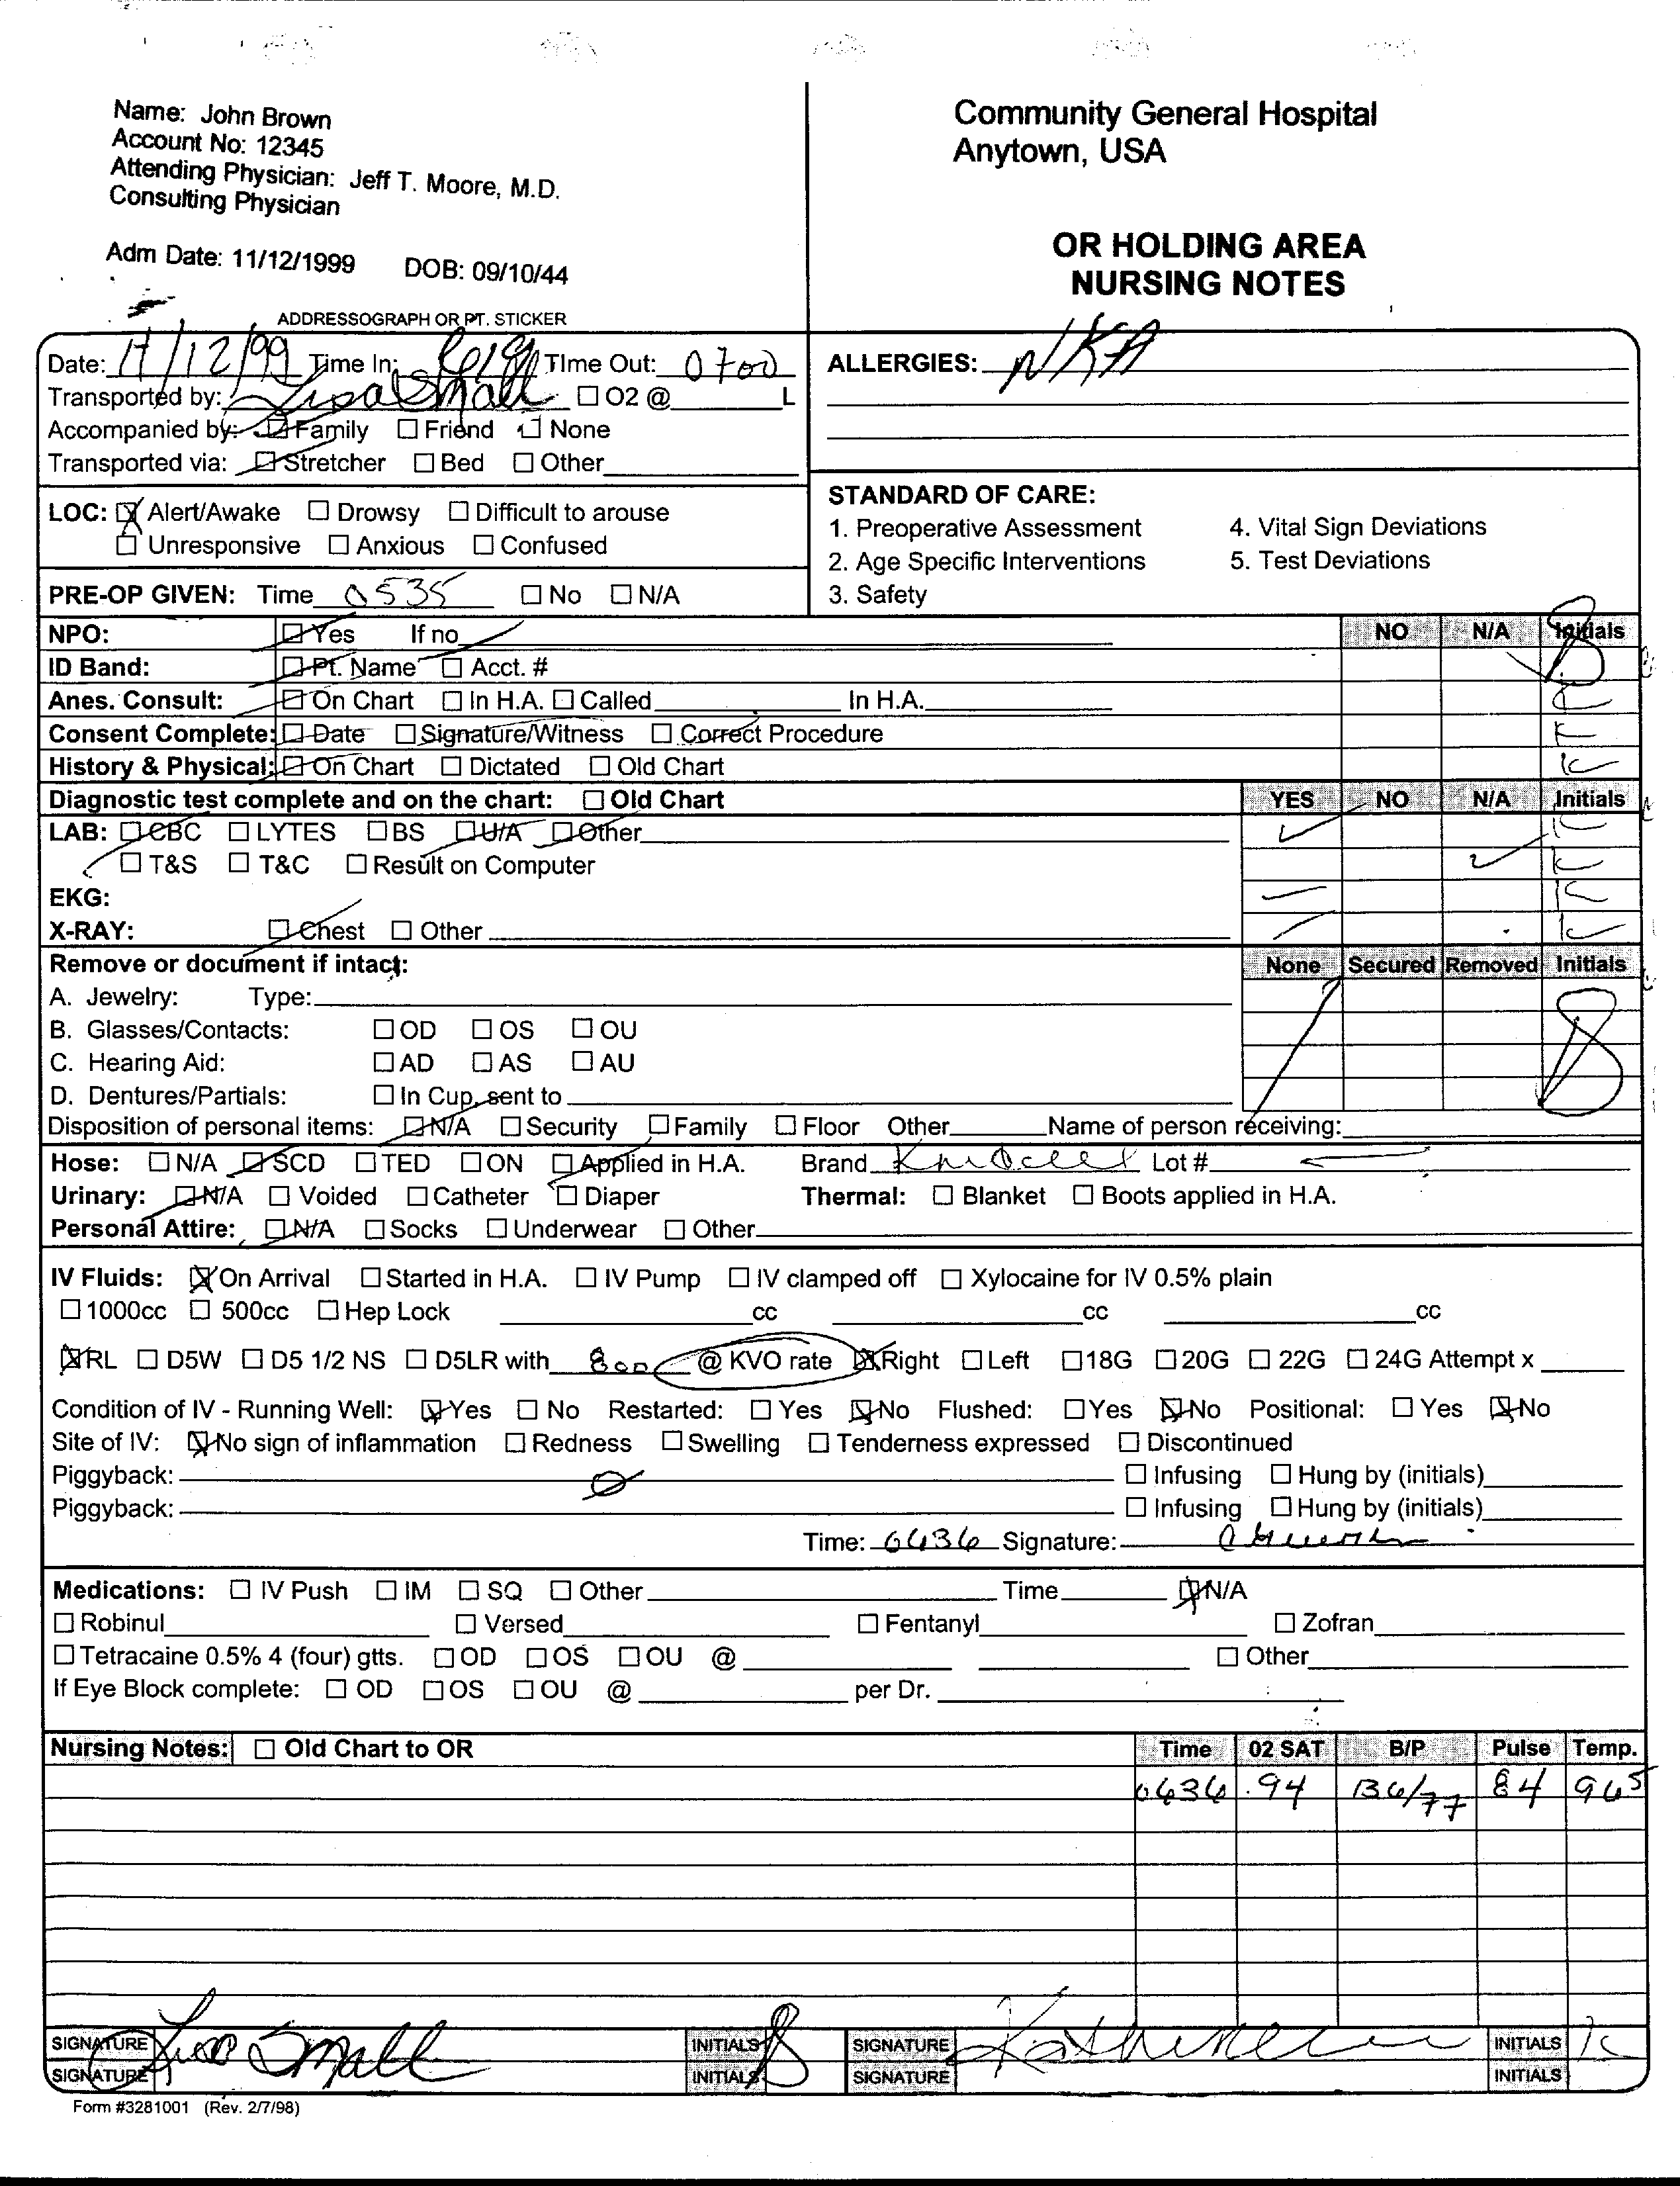 Name: John Brown
Account No: 12345
Attending Physician: Jeff T. Moore, M.D.
Consulting Physician
Adm Date: 11/12/1999 DOB: 09/10/44
ADDRESSOGRAPH OR PT. STICKER
Community General Hospital
Anytown, USA
OR HOLDING AREA
NURSING NOTES
Date: 11/12/99 Time In: TIme Out: 0700
Transported by: Lisa Small ☐ O2 @ L
Accompanied by: ☑ Family ☐ Friend ☐ None
Transported via: ☑ Stretcher ☐ Bed ☐ Other
ALLERGIES: NKA
LOC: ☒ Alert/Awake ☐ Drowsy ☐ Difficult to arouse
☐ Unresponsive ☐ Anxious ☐ Confused
PRE-OP GIVEN: Time 0535 ☐ No ☐ N/A
STANDARD OF CARE:
1. Preoperative Assessment 4. Vital Sign Deviations
2. Age Specific Interventions 5. Test Deviations
3. Safety
NPO: ☑ Yes If no NO N/A Initials
ID Band: ☑ Pt. Name ☐ Acct. #
Anes. Consult: ☑ On Chart ☐ In H.A. ☐ Called In H.A.
Consent Complete: ☑ Date ☐ Signature/Witness ☐ Correct Procedure
History & Physical: ☑ On Chart ☐ Dictated ☐ Old Chart K
Diagnostic test complete and on the chart: ☐ Old Chart YES NO N/A Initials
LAB: ☑ CBC ☐ LYTES ☐ BS ☑ U/A ☑ Other ✓ K
☐ T&S ☐ T&C ☐ Result on Computer ✓ K
EKG: K
X-RAY: ☑ Chest ☐ Other K
Remove or document if intact: None Secured Removed Initials
A. Jewelry: Type:
B. Glasses/Contacts: ☐ OD ☐ OS ☐ OU
C. Hearing Aid: ☐ AD ☐ AS ☐ AU
D. Dentures/Partials: ☐ In Cup, sent to
Disposition of personal items: ☑ N/A ☐ Security ☐ Family ☐ Floor Other Name of person receiving:
Hose: ☐ N/A ☑ SCD ☐ TED ☐ ON ☑ Applied in H.A. Brand Lot #
Urinary: ☑ N/A ☐ Voided ☐ Catheter ☐ Diaper Thermal: ☐ Blanket ☐ Boots applied in H.A.
Personal Attire: ☑ N/A ☐ Socks ☐ Underwear ☐ Other
IV Fluids: ☒ On Arrival ☐ Started in H.A. ☐ IV Pump ☐ IV clamped off ☐ Xylocaine for IV 0.5% plain
☐ 1000cc ☐ 500cc ☐ Hep Lock cc cc cc
☒ RL ☐ D5W ☐ D5 1/2 NS ☐ D5LR with 800 @ KVO rate ☒ Right ☐ Left ☐ 18G ☐ 20G ☐ 22G ☐ 24G Attempt x
Condition of IV - Running Well: ☒ Yes ☐ No Restarted: ☐ Yes ☒ No Flushed: ☐ Yes ☒ No Positional: ☐ Yes ☒ No
Site of IV: ☒ No sign of inflammation ☐ Redness ☐ Swelling ☐ Tenderness expressed ☐ Discontinued
Piggyback: ☐ Infusing ☐ Hung by (initials)
Piggyback: ☐ Infusing ☐ Hung by (initials)
Time: 0636 Signature:
Medications: ☐ IV Push ☐ IM ☐ SQ ☐ Other Time ☒ N/A
☐ Robinul ☐ Versed ☐ Fentanyl ☐ Zofran
☐ Tetracaine 0.5% 4 (four) gtts. ☐ OD ☐ OS ☐ OU @ ☐ Other
If Eye Block complete: ☐ OD ☐ OS ☐ OU @ per Dr.
Nursing Notes: ☐ Old Chart to OR Time 02 SAT B/P Pulse Temp.
0636 94 136/77 84 965
SIGNATURE Lisa Small INITIALS SIGNATURE INITIALS K
SIGNATURE INITIALS SIGNATURE INITIALS
Form #3281001 (Rev. 2/7/98)